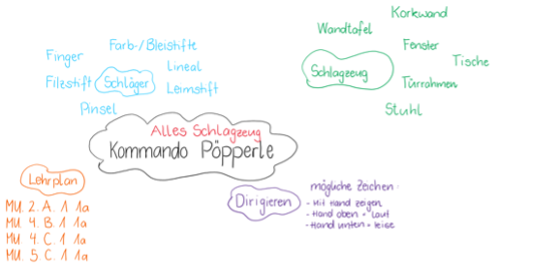 Korkwand
Wandtafel
Farb-/Bleistifte
Fenster
Finger
Lineal
Tische
Schlagzeug
Filzstift
Schläger
Leimstift
Türrahmen
Pinsel
Stuhl
Alles Schlagzeug
Kommando Pöpperle
Lehrplan
mögliche Zeichen:
Dirigieren
- Mit Hand zeigen
- Hand oben = laut
- Hand unten = leise
MU. 2. A. 1 1a
MU. 4. B. 1 1a
MU. 4. C. 1 1a
MU. 5. C. 1 1a